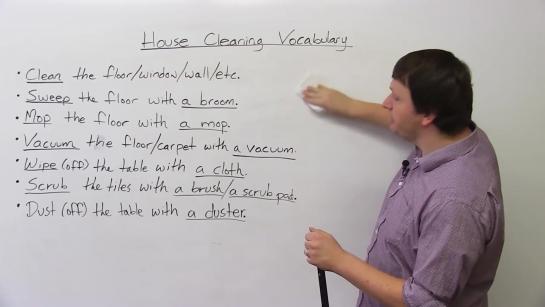 House Cleaning Vocabulary
• Clean the floor/window/wall/etc.
• Sweep the floor with a broom.
• Mop the floor with a mop.
• Vacuum the floor/carpet with a vacuum.
• Wipe (off) the table with a cloth.
• Scrub the tiles with a brush/a scrub pad.
• Dust (off) the table with a duster.